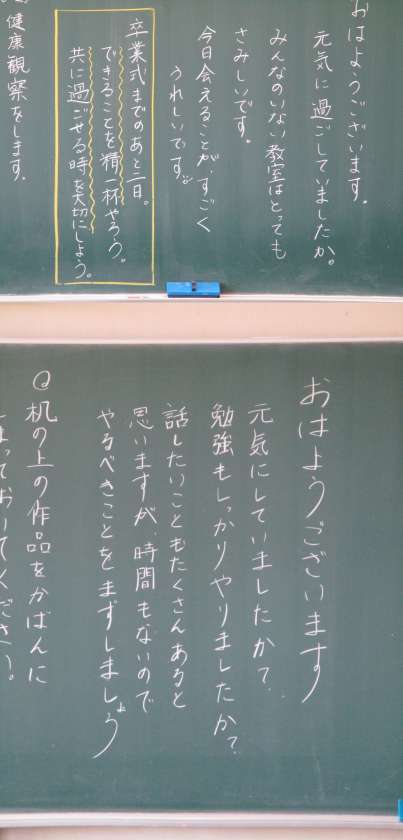 おはようございます。
元気に過ごしていましたか。
みんなのいない教室はとっても
さみしいです。
今日会えることが、すごく
うれしいです。
卒業式までのあと二日。
できることを精一杯やろう。
共に過ごせる時を大切にしよう。
健康観察をします。
おはようございます
元気にしていましたか?
勉強もしっかりやりましたか?
話したいこともたくさんあると
思いますが、時間もないので
やるべきことをまずしましょう
机の上の作品をかばんに
まっておいてください。